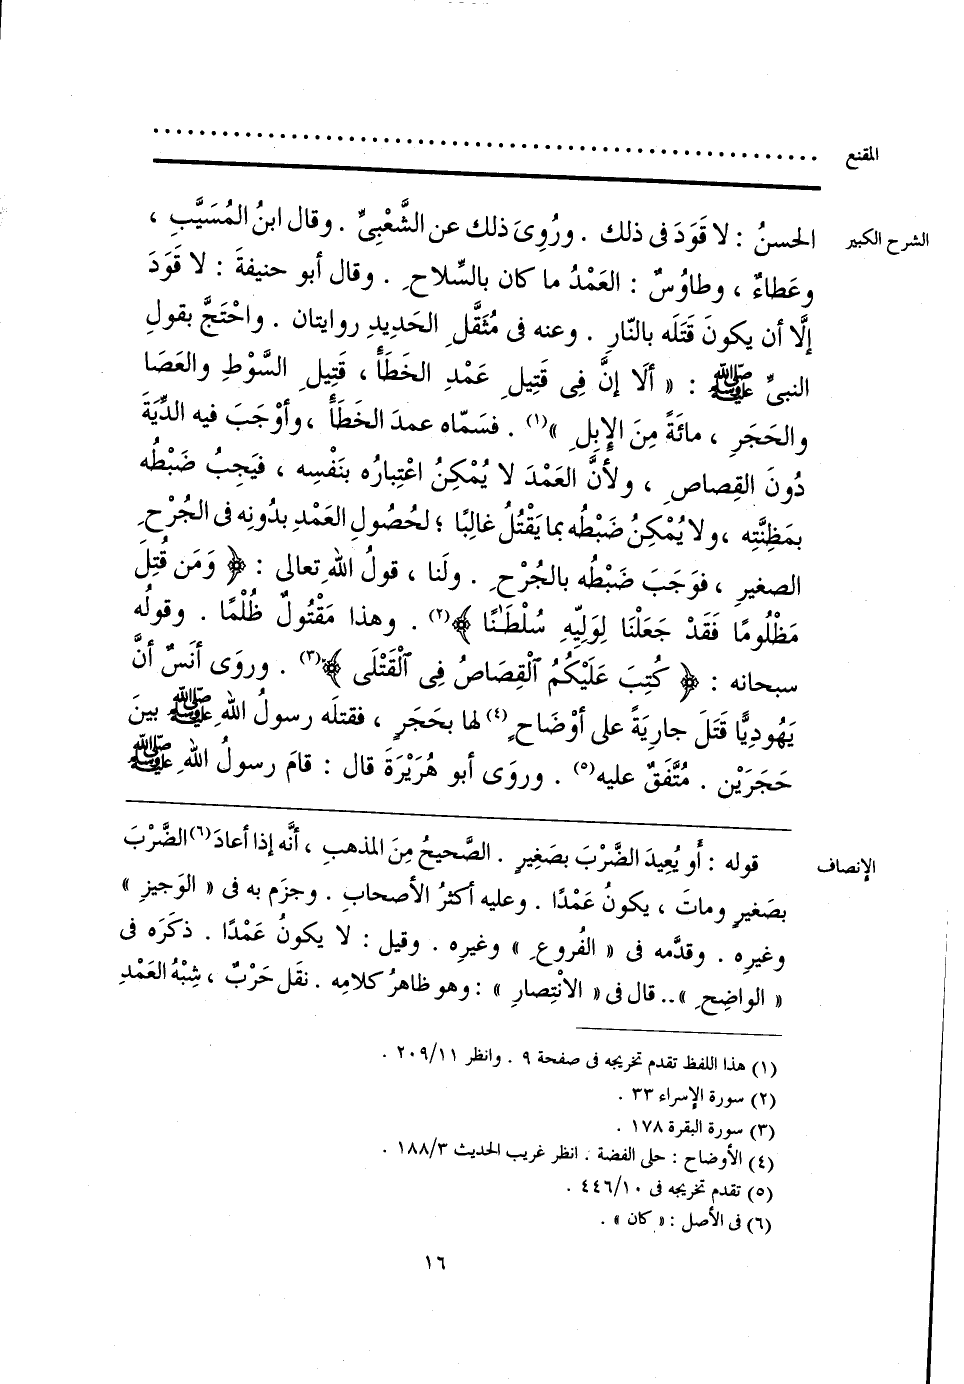 المقنع ..............................................................
الشرح الكبير الحسنُ : لا قَوَدَ فى ذلك . ورُوِىَ ذلك عن الشَّعْبِىِّ . وقال ابنُ المُسَيَّبِ ،
وعَطاءٌ ، وطاوُسٌ : العَمْدُ ما كان بالسِّلاحِ . وقال أبو حنيفةَ : لا قَوَدَ
إلَّا أن يكونَ قَتَلَه بالنَّارِ . وعنه فى مُثَقَّلِ الحَديدِ روايتان . واحْتَجَّ بقولِ
النبىِّ ﷺ : « ألَا إنَّ فِى قَتِيلِ عَمْدِ الخَطَأَ ، قَتِيلِ السَّوْطِ والعَصَا
والحَجَرِ ، مائَةً مِنَ الإِبِلِ »(١) . فسَمّاه عمدَ الخَطَأ ، وأوْجَبَ فيه الدِّيَةَ
دُونَ القِصاصِ ، ولأنَّ العَمْدَ لا يُمْكِنُ اعْتِبارُه بنَفْسِه ، فيَجِبُ ضَبْطُه
بمَظِنَّتِه ، ولا يُمْكِنُ ضَبْطُه بما يَقْتُلُ غالِبًا ؛ لحُصُولِ العَمْدِ بدُونِه فى الجُرْحِ
الصغيرِ ، فوَجَبَ ضَبْطُه بالجُرْحِ . ولَنا ، قولُ اللهِ تعالى : ﴿ وَمَن قُتِلَ
مَظْلُومًا فَقَدْ جَعَلْنَا لِوَلِيِّهِ سُلْطَـٰنًا ﴾(٢) . وهذا مَقْتُولٌ ظُلْمًا . وقولُه
سبحانه : ﴿ كُتِبَ عَلَيْكُمُ ٱلْقِصَاصُ فِى ٱلْقَتْلَى ﴾(٣) . وروَى أنَسٌ أنَّ
يَهُودِيًّا قَتَلَ جارِيَةً على أوْضاحٍ(٤) لها بحَجَرٍ ، فقتلَه رسولُ اللهِ ﷺ بينَ
حَجَرَيْن . مُتَّفَقٌ عليه(٥) . وروَى أبو هُرَيْرَةَ قال : قامَ رسولُ اللهِ ﷺ
الإنصاف قوله : أو يُعِيدَ الضَّرْبَ بصَغِيرٍ . الصَّحيحُ مِنَ المذهبِ ، أنَّه إذا أعادَ(٦) الضَّرْبَ
بصَغيرٍ وماتَ ، يكونُ عَمْدًا . وعليه أكثرُ الأصحابِ . وجزَم به فى « الوَجيزِ »
وغيرِه . وقدَّمه فى « الفُروعِ » وغيرِه . وقيل : لا يكونُ عَمْدًا . ذكَرَه فى
« الواضِحِ » .. قال فى « الانْتِصارِ » : وهو ظاهرُ كلامِه . نقَل حَرْبٌ ، شِبْهُ العَمْدِ
(١) هذا اللفظ تقدم تخريجه فى صفحة ٩ . وانظر ٢٠٩/١١ .
(٢) سورة الإسراء ٣٣ .
(٣) سورة البقرة ١٧٨ .
(٤) الأوضاح : حلى الفضة . انظر غريب الحديث ١٨٨/٣ .
(٥) تقدم تخريجه فى ٤٤٦/١٠ .
(٦) فى الأصل : « كان » .
١٦